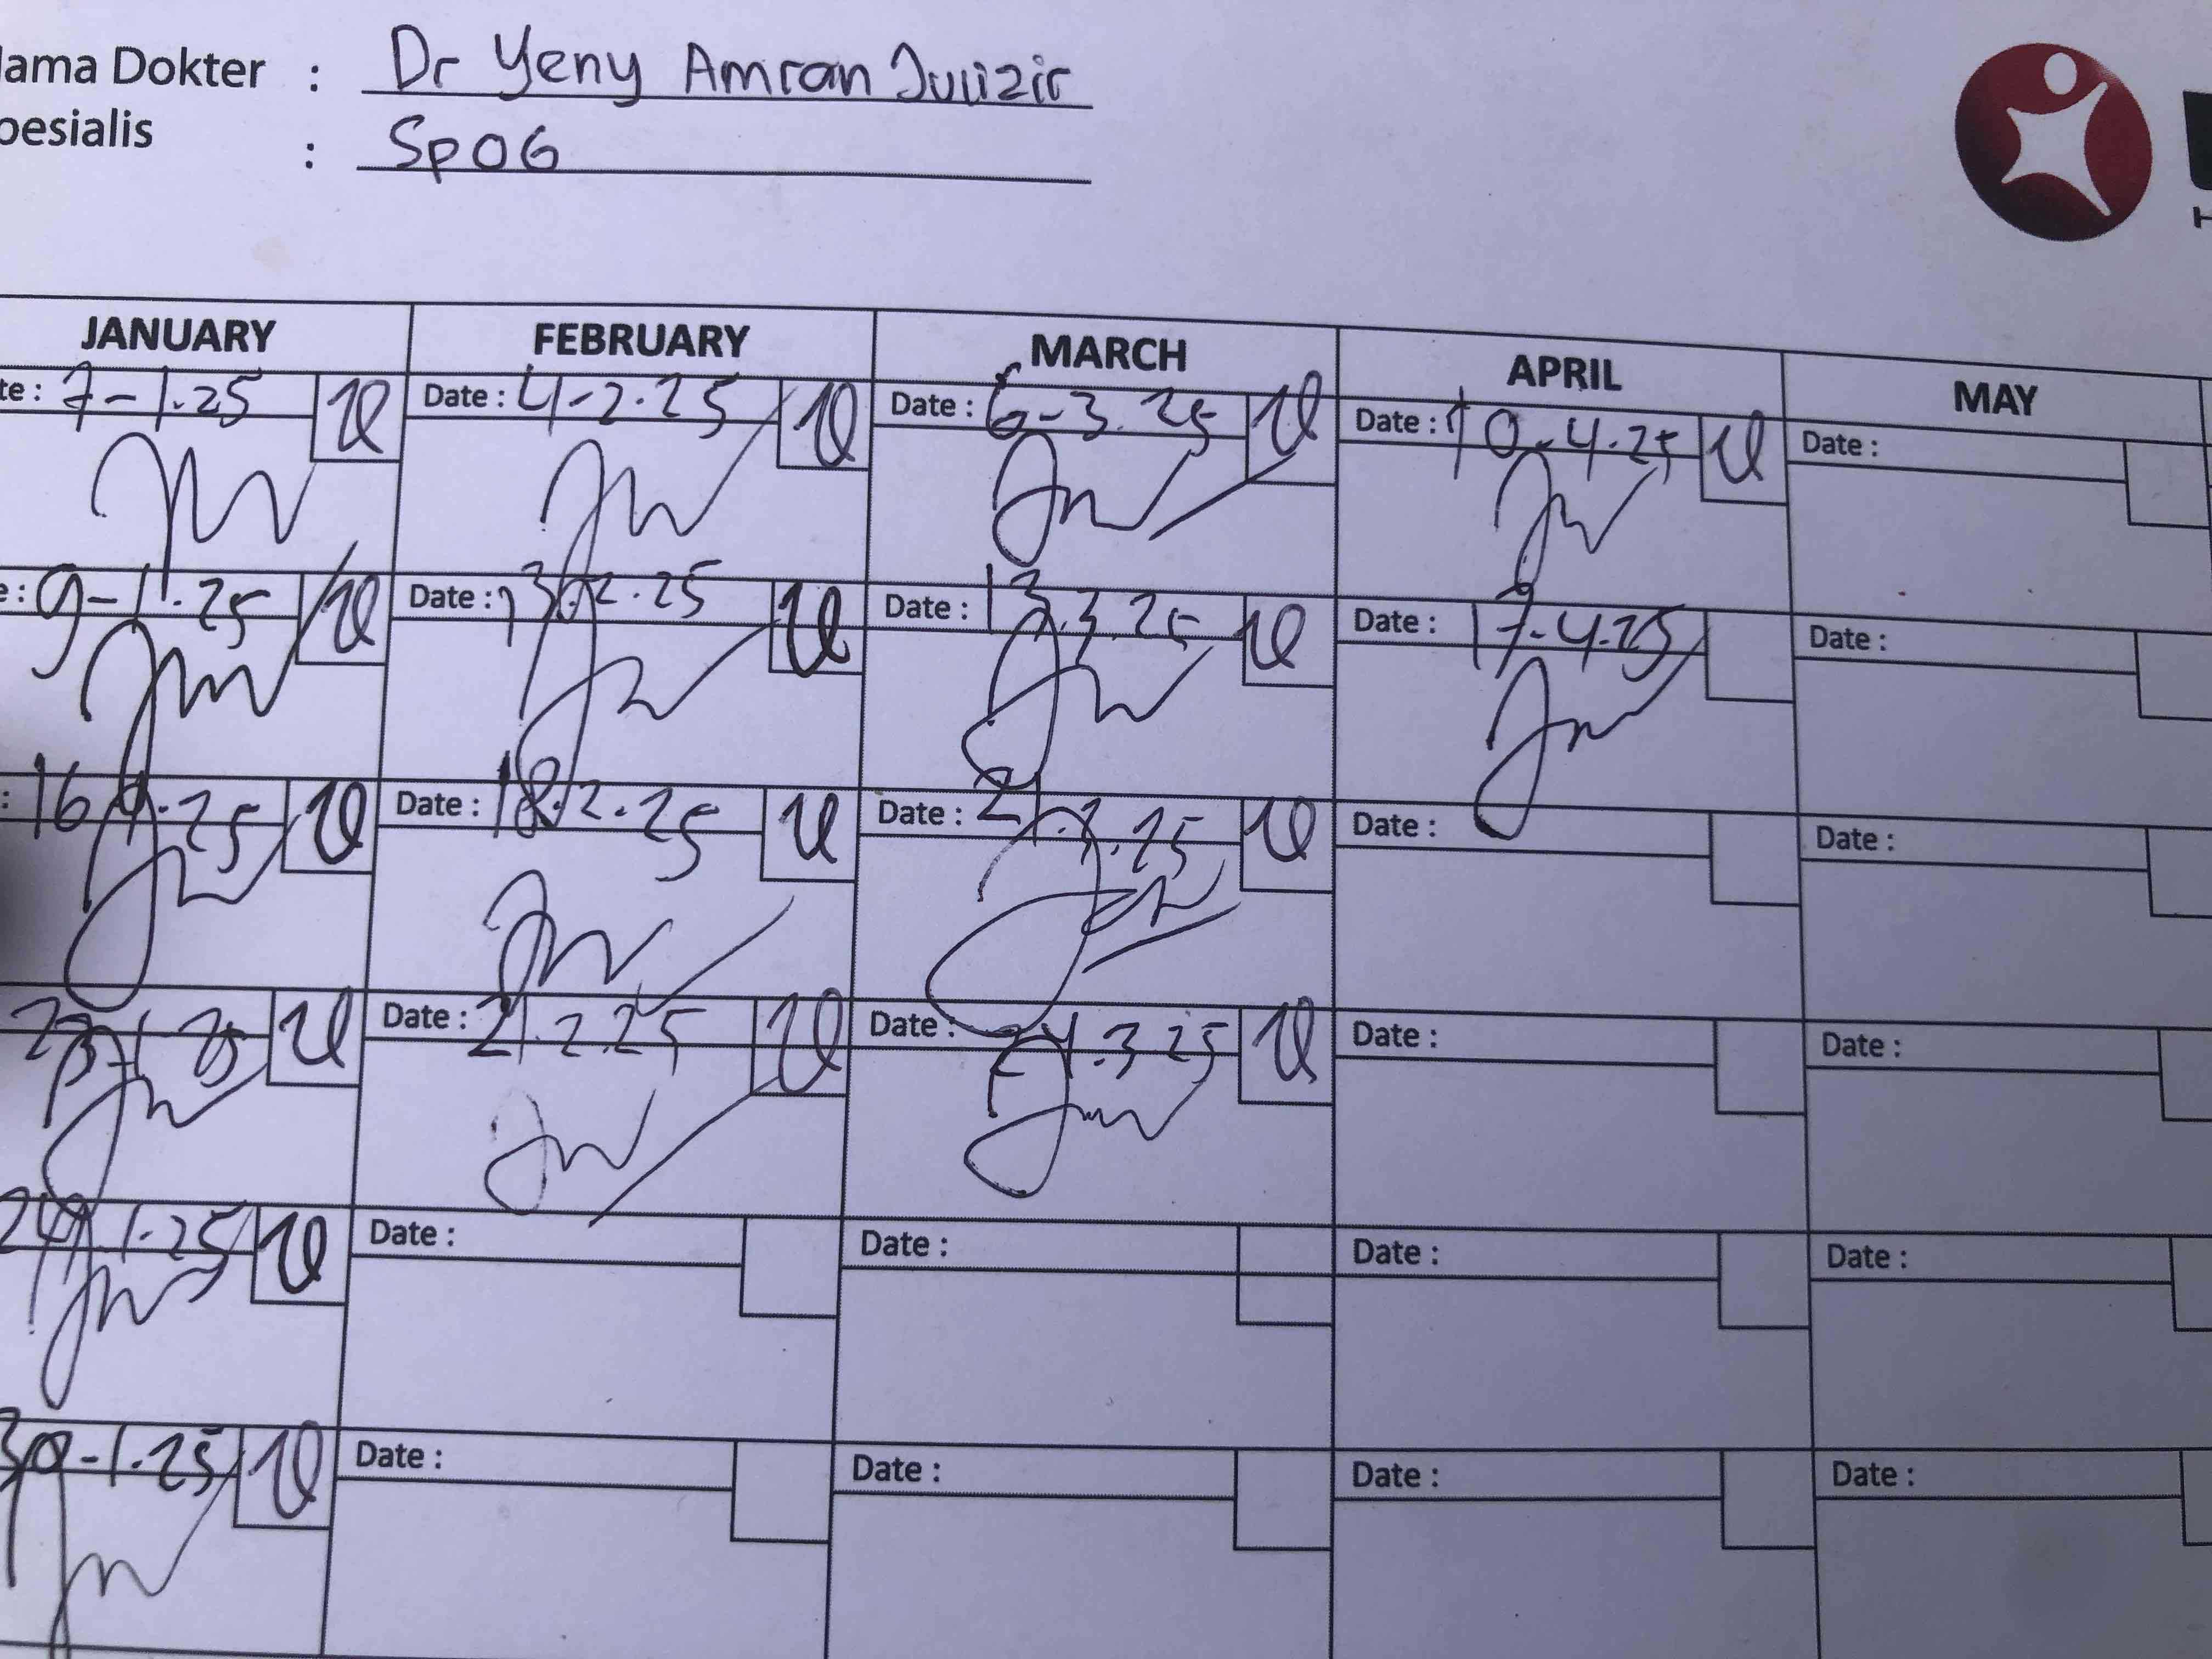 ama Dokter : Dr Yeny Amran Julizir
pesialis : SpOG
JANUARY FEBRUARY MARCH APRIL MAY
te : 7-1.25 Date : 4-2.25 Date : 6-3.25 Date : 10-4.25 Date :
e : 9-1.25 Date : 13.2.25 Date : 13.3.25 Date : 17-4.25 Date :
: 16.1.25 Date : 18.2.25 Date : 21.3.25 Date : Date :
23-1.25 Date : 21.2.25 Date : 24.3.25 Date : Date :
1.25 Date : Date : Date : Date :
30-1.25 Date : Date : Date : Date :